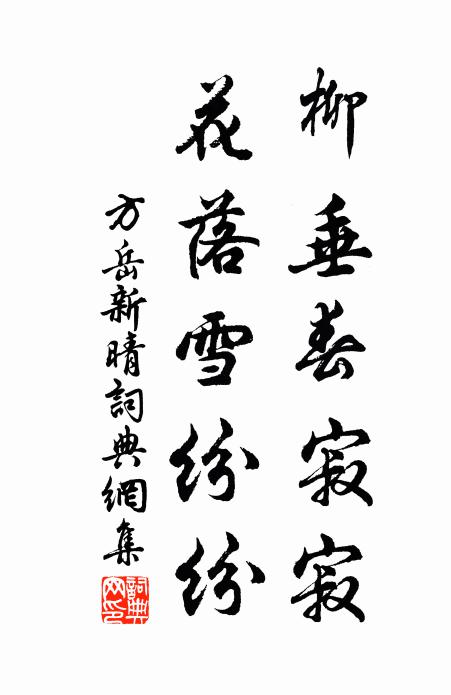 柳垂春寂寂
花落雪紛紛
方岳新晴詞典網集
詞典網印